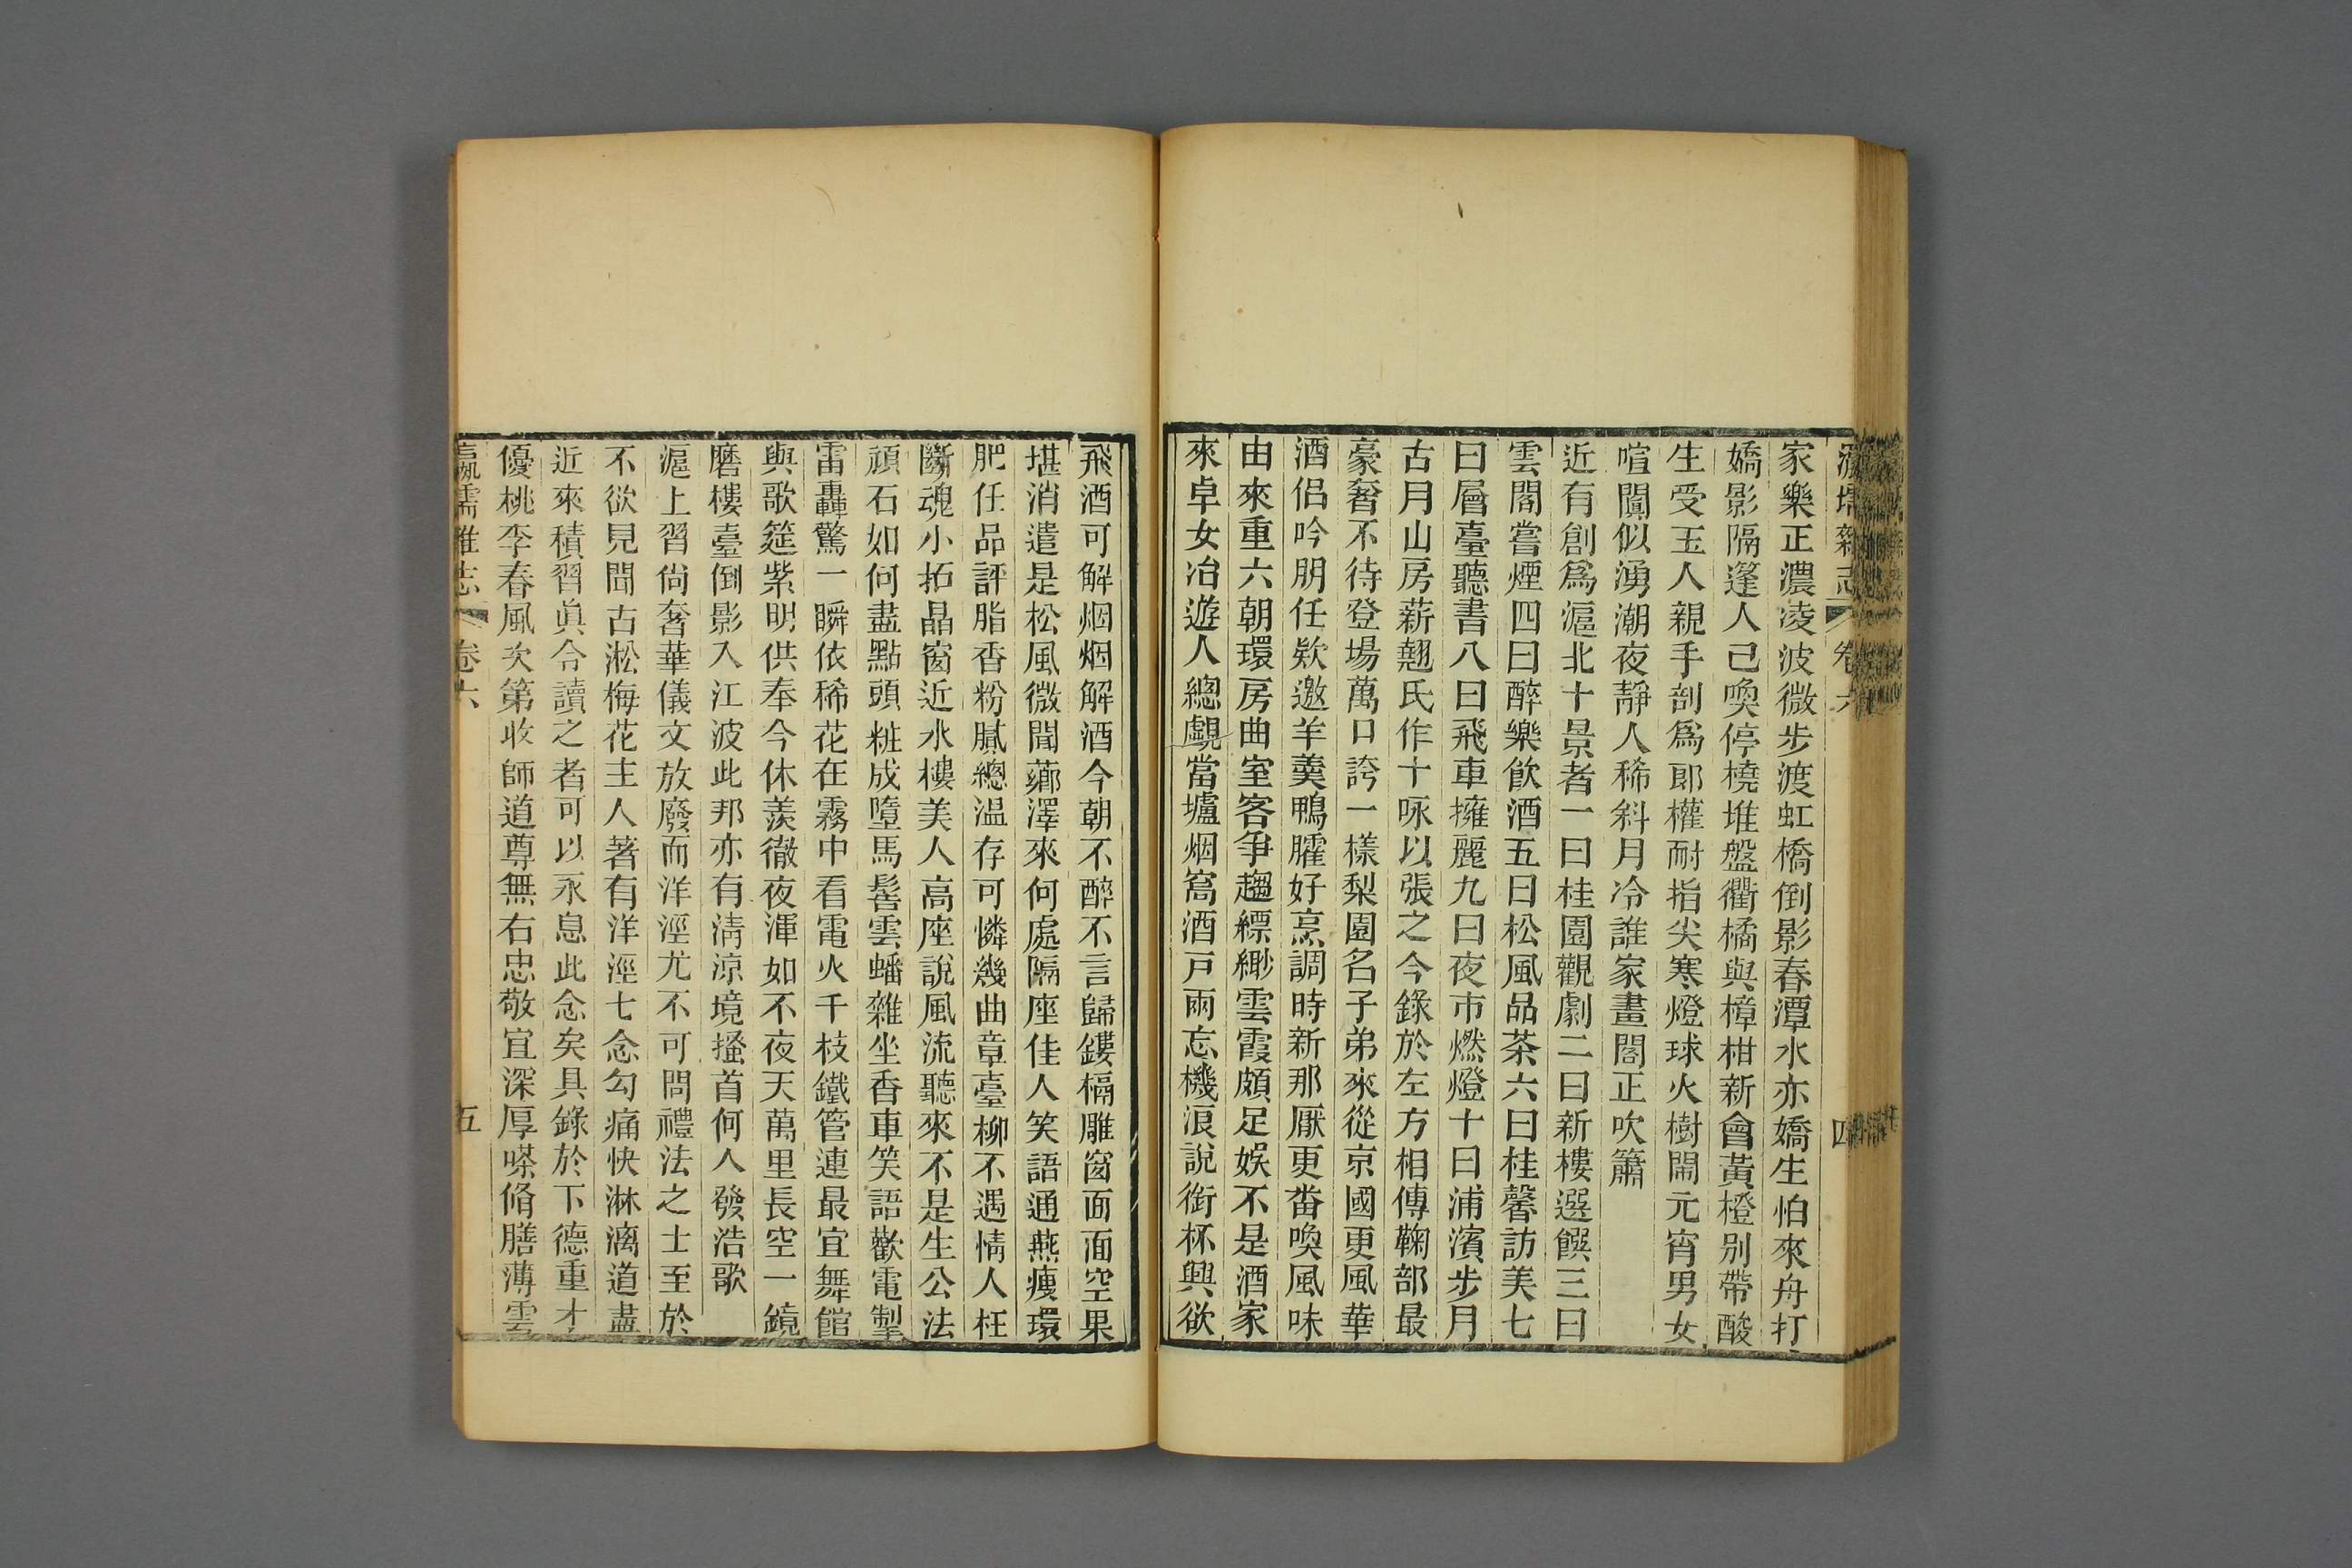 瀛壖雜志 卷六 四
家樂正濃凌波微步渡虹橋倒影春潭水亦嬌生怕來舟打
嬌影隔篷人已喚停橈堆盤衢橘與樟柑新會黃橙別帶酸
生受玉人親手剖爲郎權耐指尖寒燈球火樹鬧元宵男女
喧闐似湧潮夜靜人稀斜月冷誰家畫閣正吹簫
近有創爲滬北十景者一曰桂園觀劇二曰新樓選饌三曰
雲閣嘗煙四曰醉樂飮酒五曰松風品茶六曰桂馨訪美七
曰層臺聽書八曰飛車擁麗九曰夜市燃燈十曰浦濱步月
古月山房薪翹氏作十咏以張之今錄於左方相傳鞠部最
豪奢不待登場萬口誇一樣梨園名子弟來從京國更風華
酒侶吟朋任欵邀羊羹鴨臛好烹調時新那厭更番喚風味
由來重六朝環房曲室客爭趨縹緲雲霞頗足娛不是酒家
來卓女冶遊人總覷當壚烟窩酒戸兩忘機浪說銜杯興欲
飛酒可解烟烟解酒今朝不醉不言歸鏤槅雕窗面面空果
堪消遣是松風微聞薌澤來何處隔座佳人笑語通燕瘦環
肥任品評脂香粉膩總温存可憐幾曲章臺柳不遇情人枉
斷魂小拓晶窗近水樓美人高座說風流聽來不是生公法
頑石如何盡點頭粧成墮馬髻雲蟠雜坐香車笑語歡電掣
雷轟驚一瞬依稀花在霧中看電火千枝鐵管連最宜舞館
與歌筵紫明供奉今休羨徹夜渾如不夜天萬里長空一鏡
磨樓臺倒影入江波此邦亦有淸涼境搔首何人發浩歌
滬上習尙奢華儀文放廢而洋涇尤不可問禮法之士至於
不欲見聞古淞梅花主人著有洋涇七念勾痛快淋漓道盡
近來積習眞令讀之者可以永息此念矣具錄於下德重才
優桃李春風次第收師道尊無右忠敬宜深厚嗏脩膳薄雲
瀛壖雜志 卷六 五